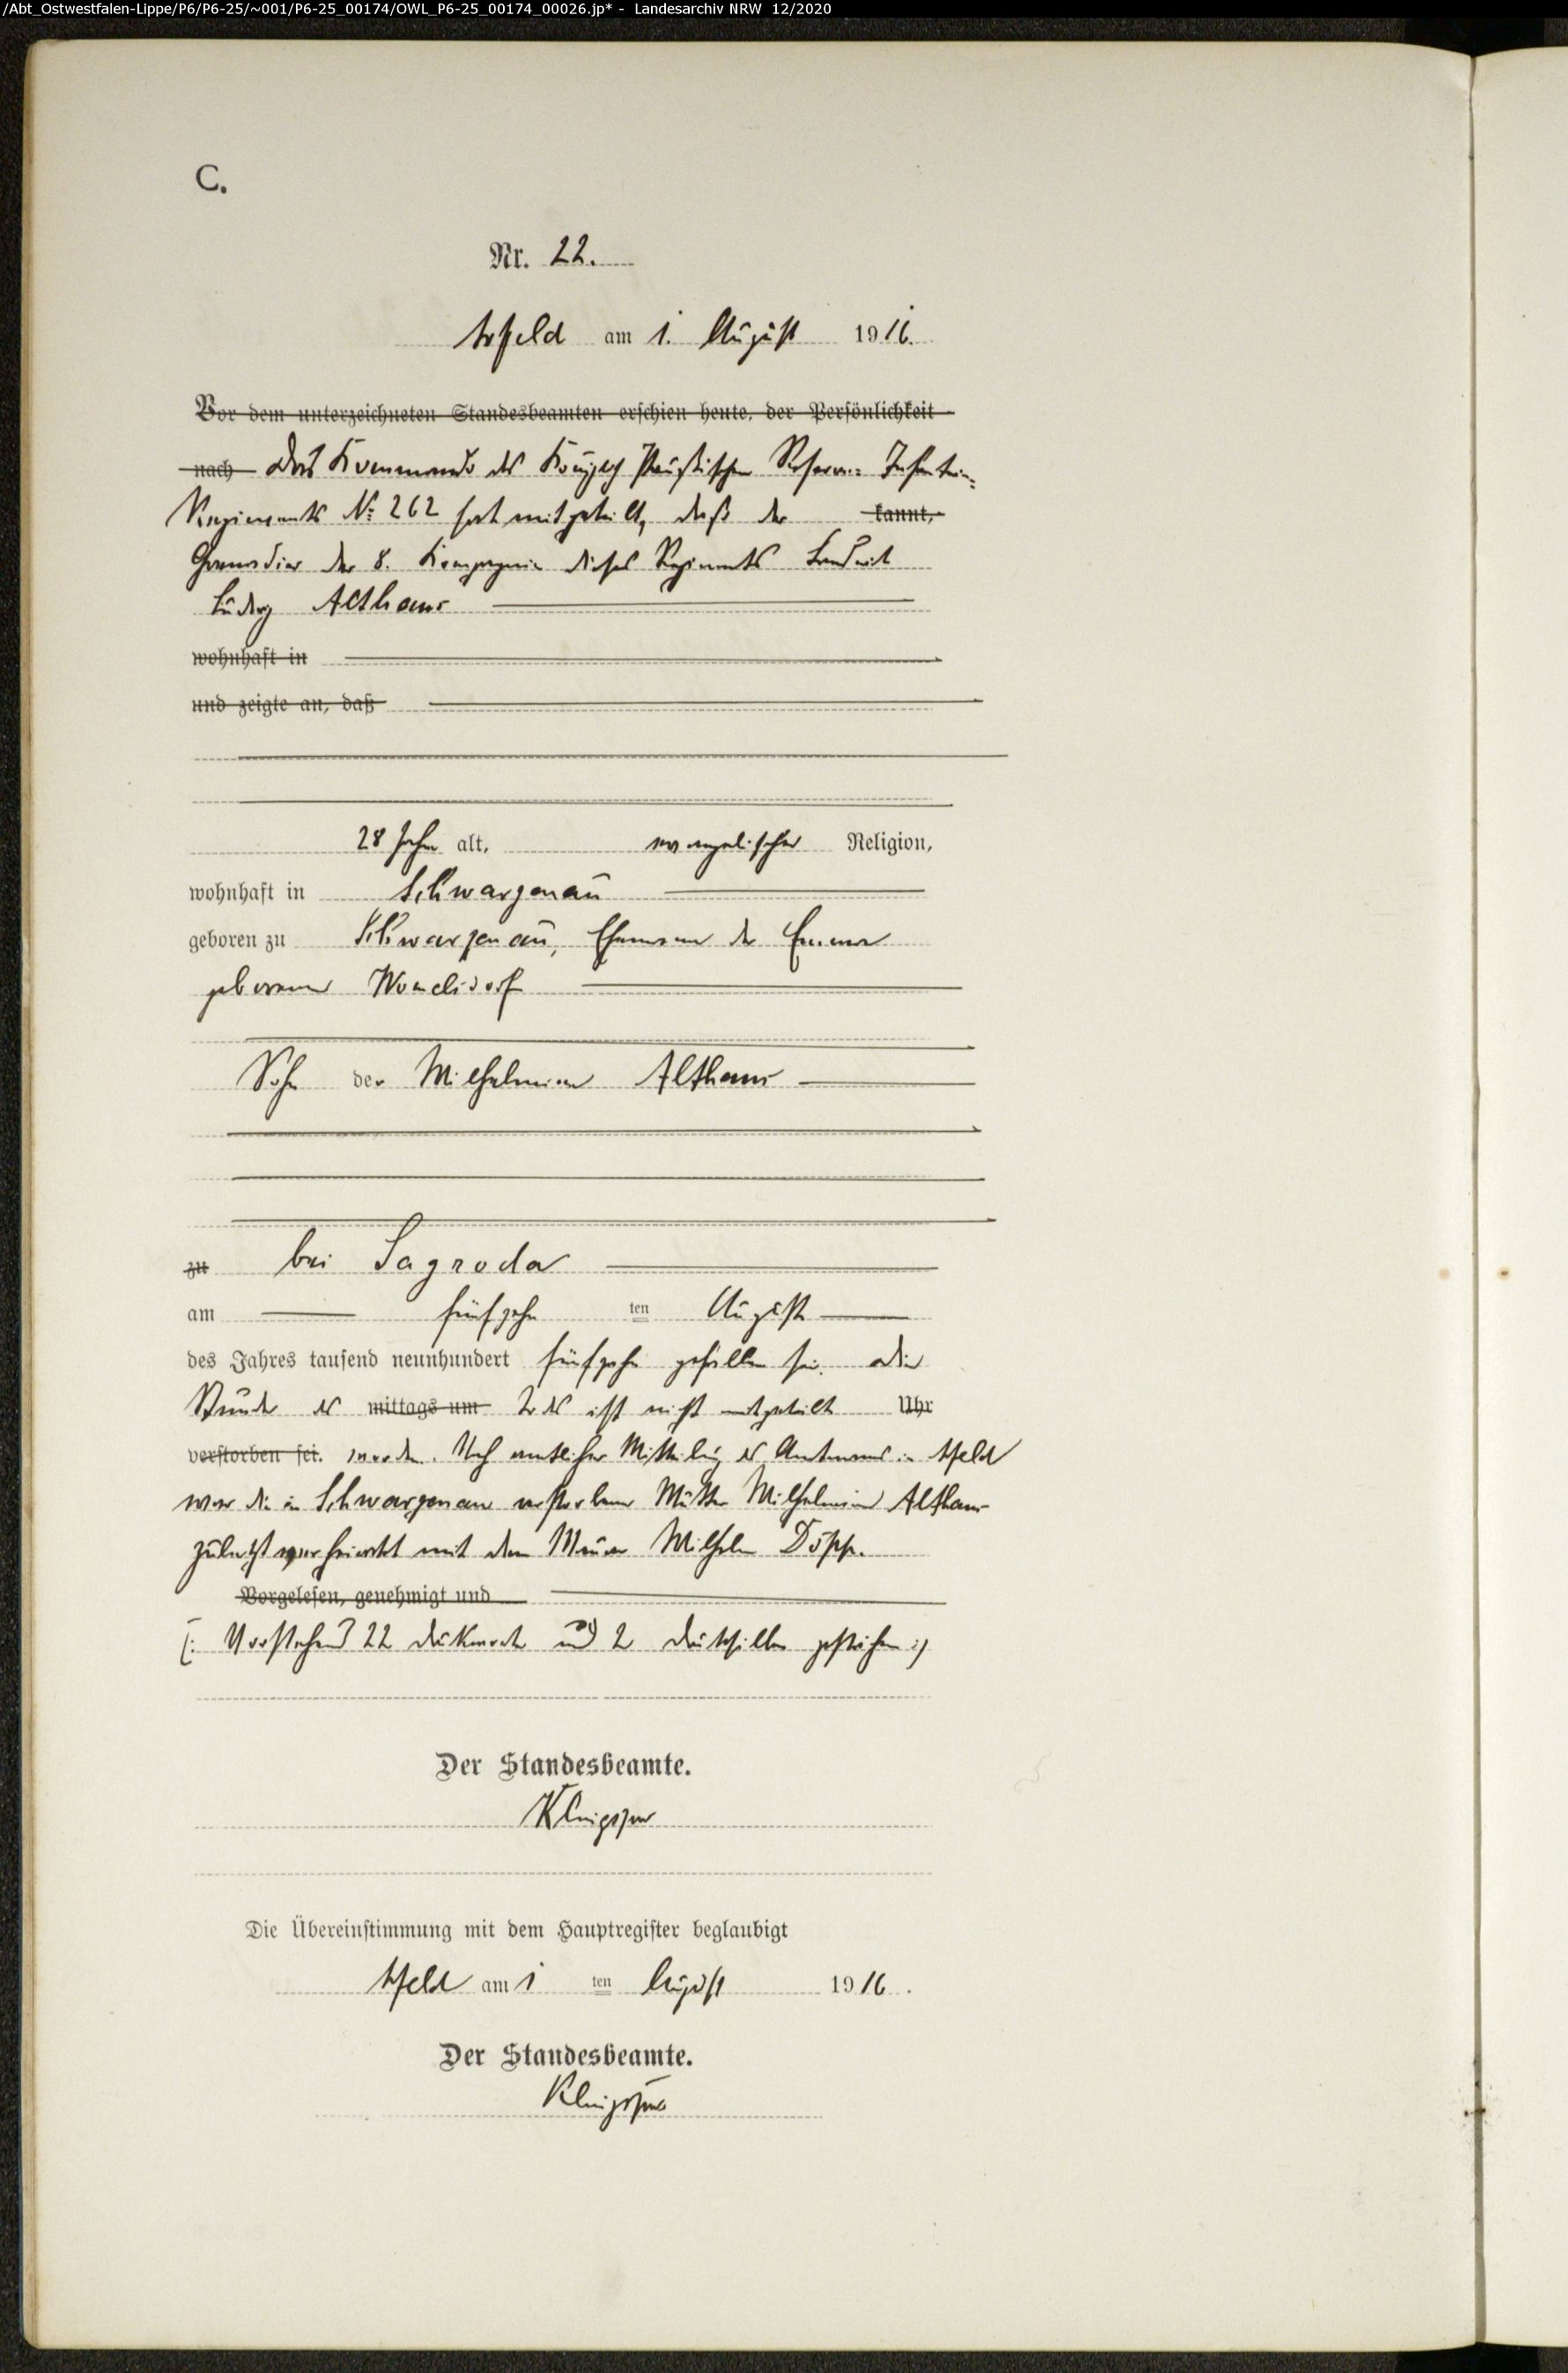 /Abt_Ostwestfalen-Lippe/P6/P6-25/~001/P6-25_00174/OWL_P6-25_00174_00026.jp* - Landesarchiv NRW 12/2020
C.
Nr. 22.
Arfeld am 1. August 1916.
Vor dem unterzeichneten Standesbeamten erschien heute, der Persönlichkeit
nach Das Kommando des Königlich Preußischen Reserve- Infanterie-
Regiments No 262 hat mitgeteilt, daß der kannt,
Grenadier der 8. Kompagnie dieses Regiments Landwirt
Ludwig Althaus
wohnhaft in
und zeigte an, daß
28 Jahre alt, evangelischer Religion,
wohnhaft in Schwarzenau
geboren zu Schwarzenau, Ehemann der Emma
geborenen Womelsdorf
Sohn der Wilhelmine Althaus
zu bei Sagroda
am fünfzehn ten August
des Jahres tausend neunhundert fünfzehn gefallen sei. Die
Stunde des mittags um Todes ist nicht mitgeteilt Uhr
verstorben sei. worden. Nach amtlicher Mitteilung des Amtmanns in Arfeld
war die in Schwarzenau verstorbene Mutter Wilhelmine Althaus
zuletzt verheiratet mit dem Maurer Wilhelm Döpp.
Vorgelesen, genehmigt und
(: Vorstehend 22 Druckworte und 2 Drucksilben gestrichen :)
Der Standesbeamte.
Klingspor
Die Übereinstimmung mit dem Hauptregister beglaubigt
Arfeld am 1 ten August 1916.
Der Standesbeamte.
Klingspor